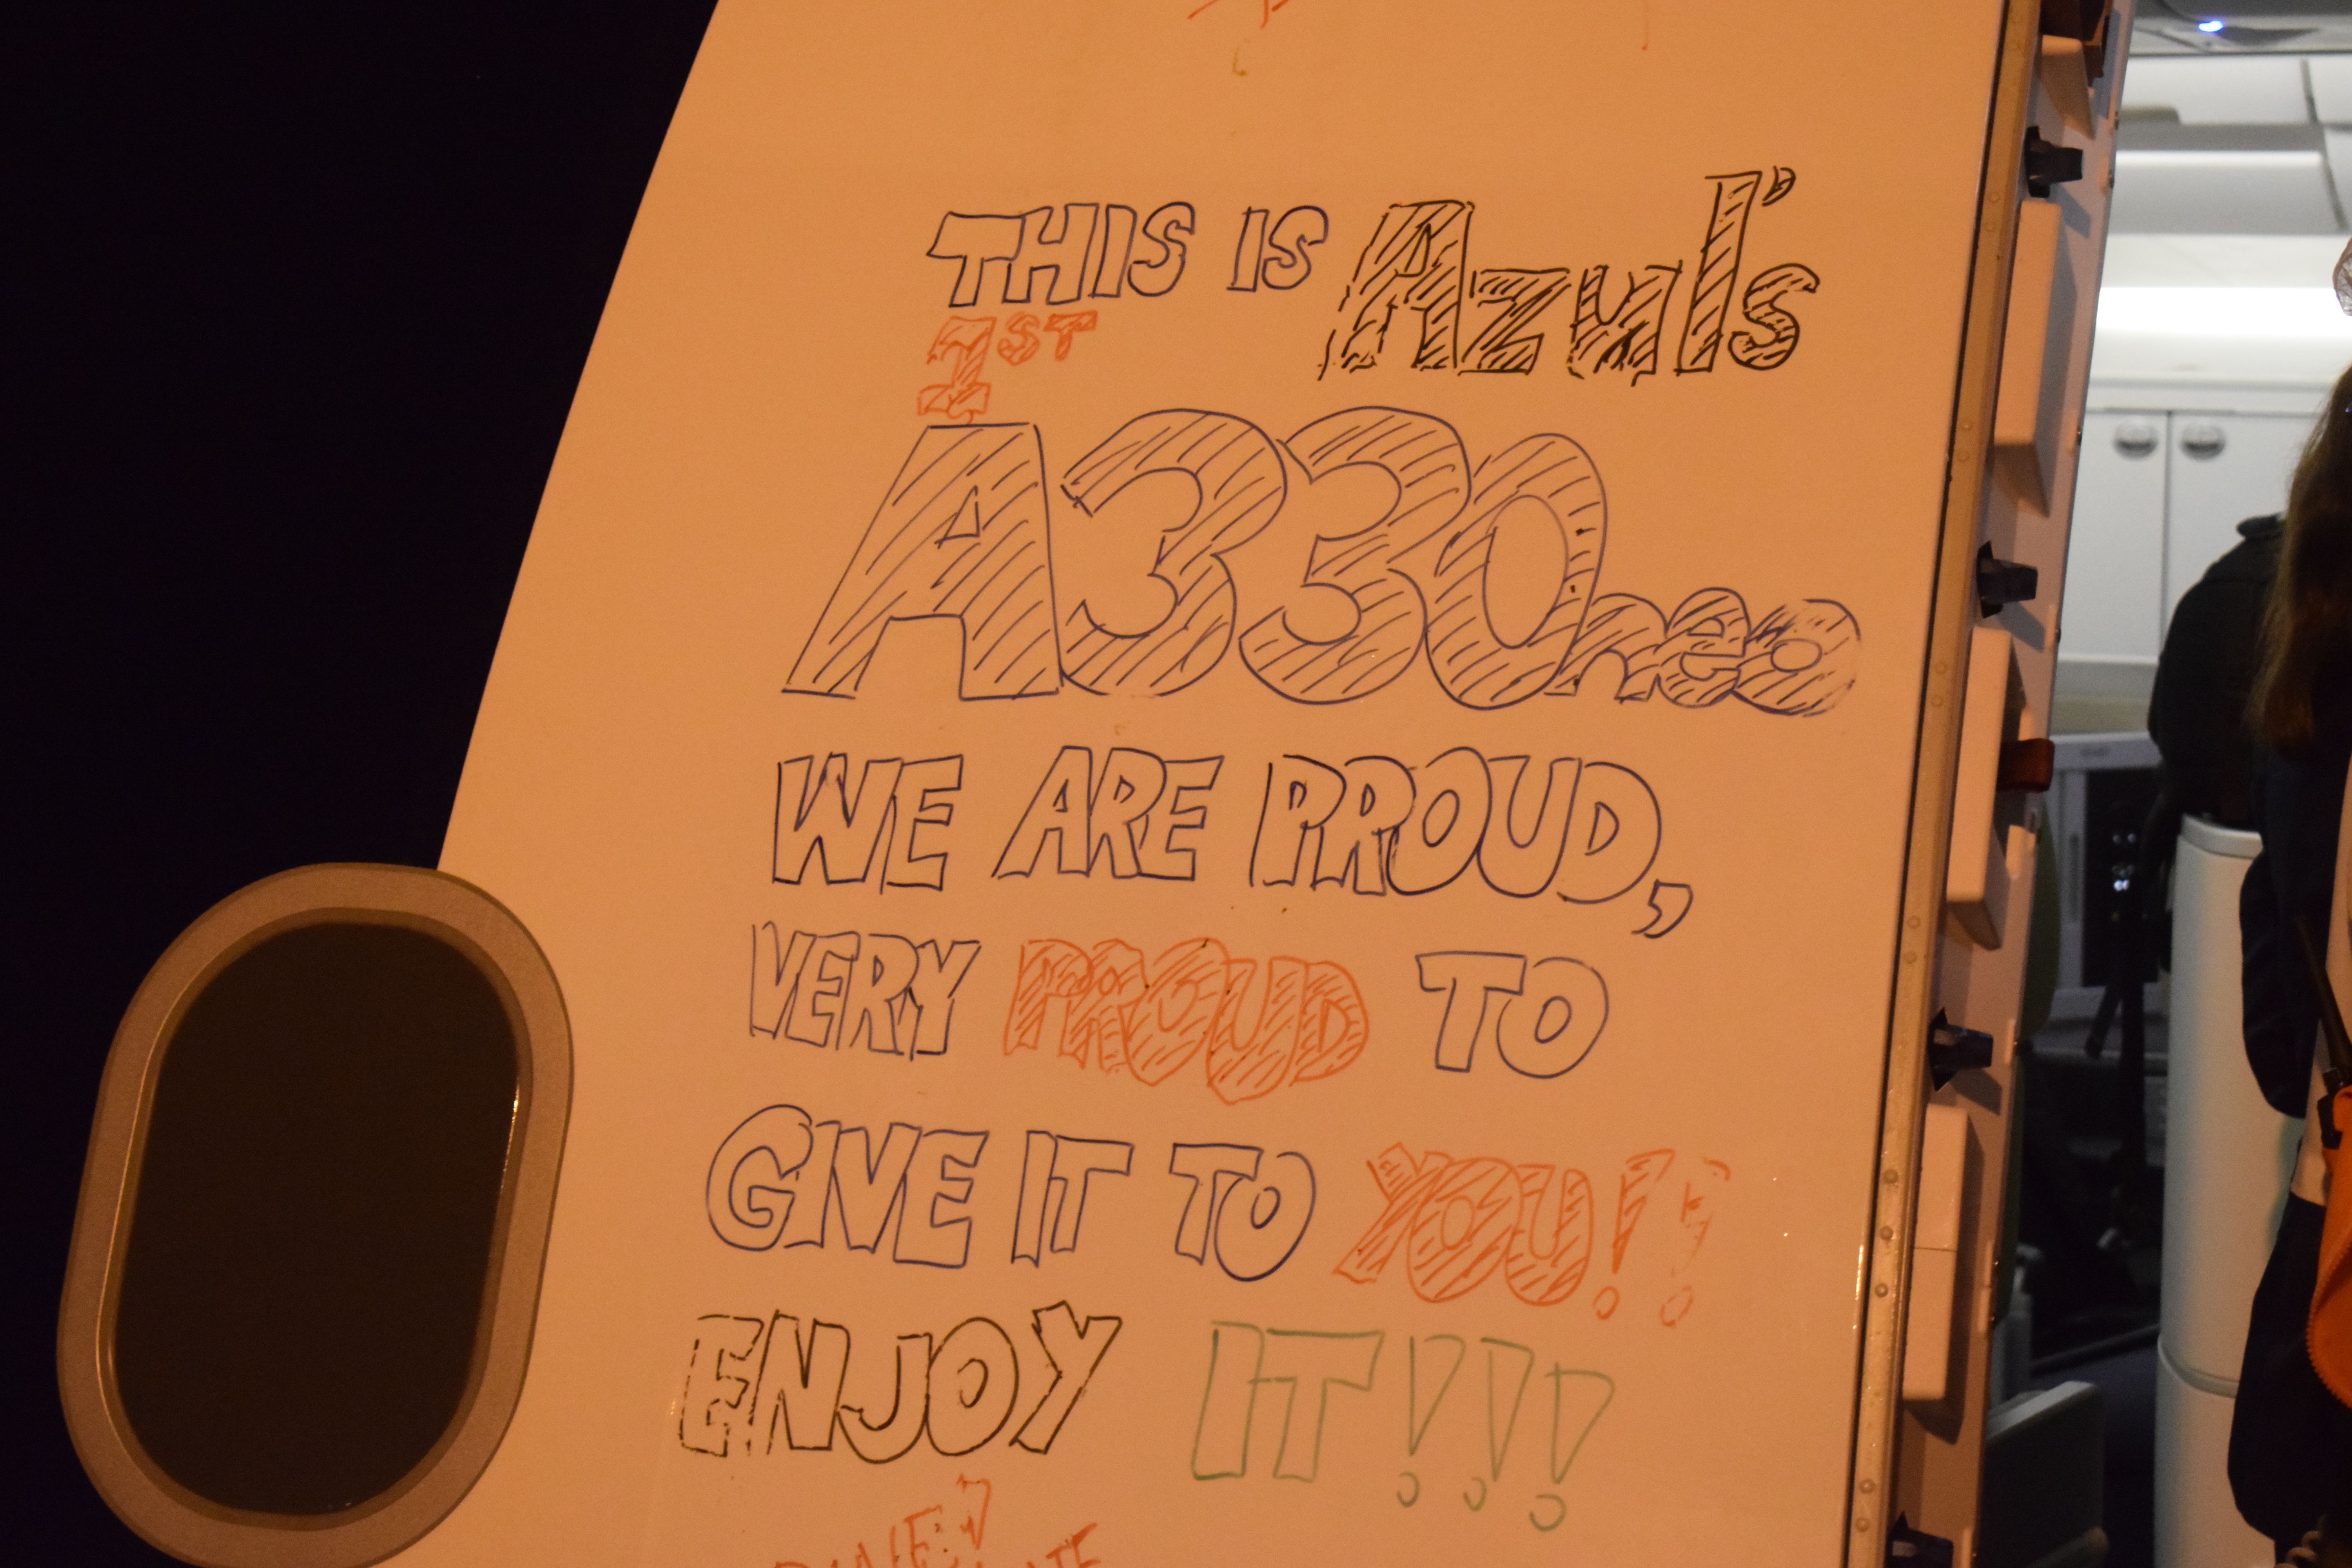 THIS IS Azul's
1ST
A330neo
WE ARE PROUD,
VERY PROUD TO
GIVE IT TO YOU!!
ENJOY IT!!!